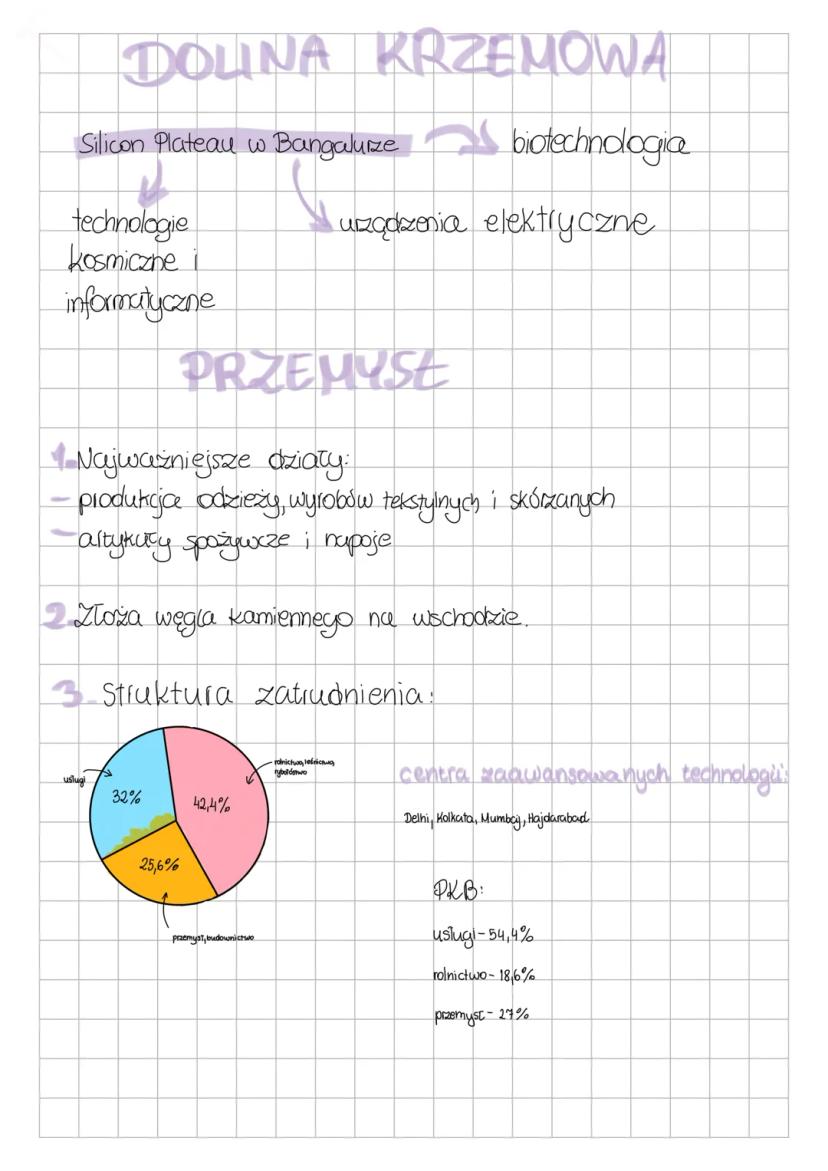 DOLINA KRZEMOWA
Silicon Plateau w Bangalurze
biotechnologia
technologie
kosmiczne i
informatyczne
urządzenia elektryczne
PRZEMYSŁ
1. Najważniejsze działy:
- produkcja odzieży, wyrobów tekstylnych i skórzanych
- artykuły spożywcze i napoje
2. Złoża węgla kamiennego na wschodzie.
3. Struktura zatrudnienia:
usługi
32%
42,4%
rolnictwo, leśnictwo,
rybołóstwo
25,6%
przemysł, budownictwo
centra zaawansowanych technologii:
Delhi, Kolkata, Mumbaj, Hajdarabad
PKB:
usługi - 54,4%
rolnictwo - 18,6%
przemysł - 27%